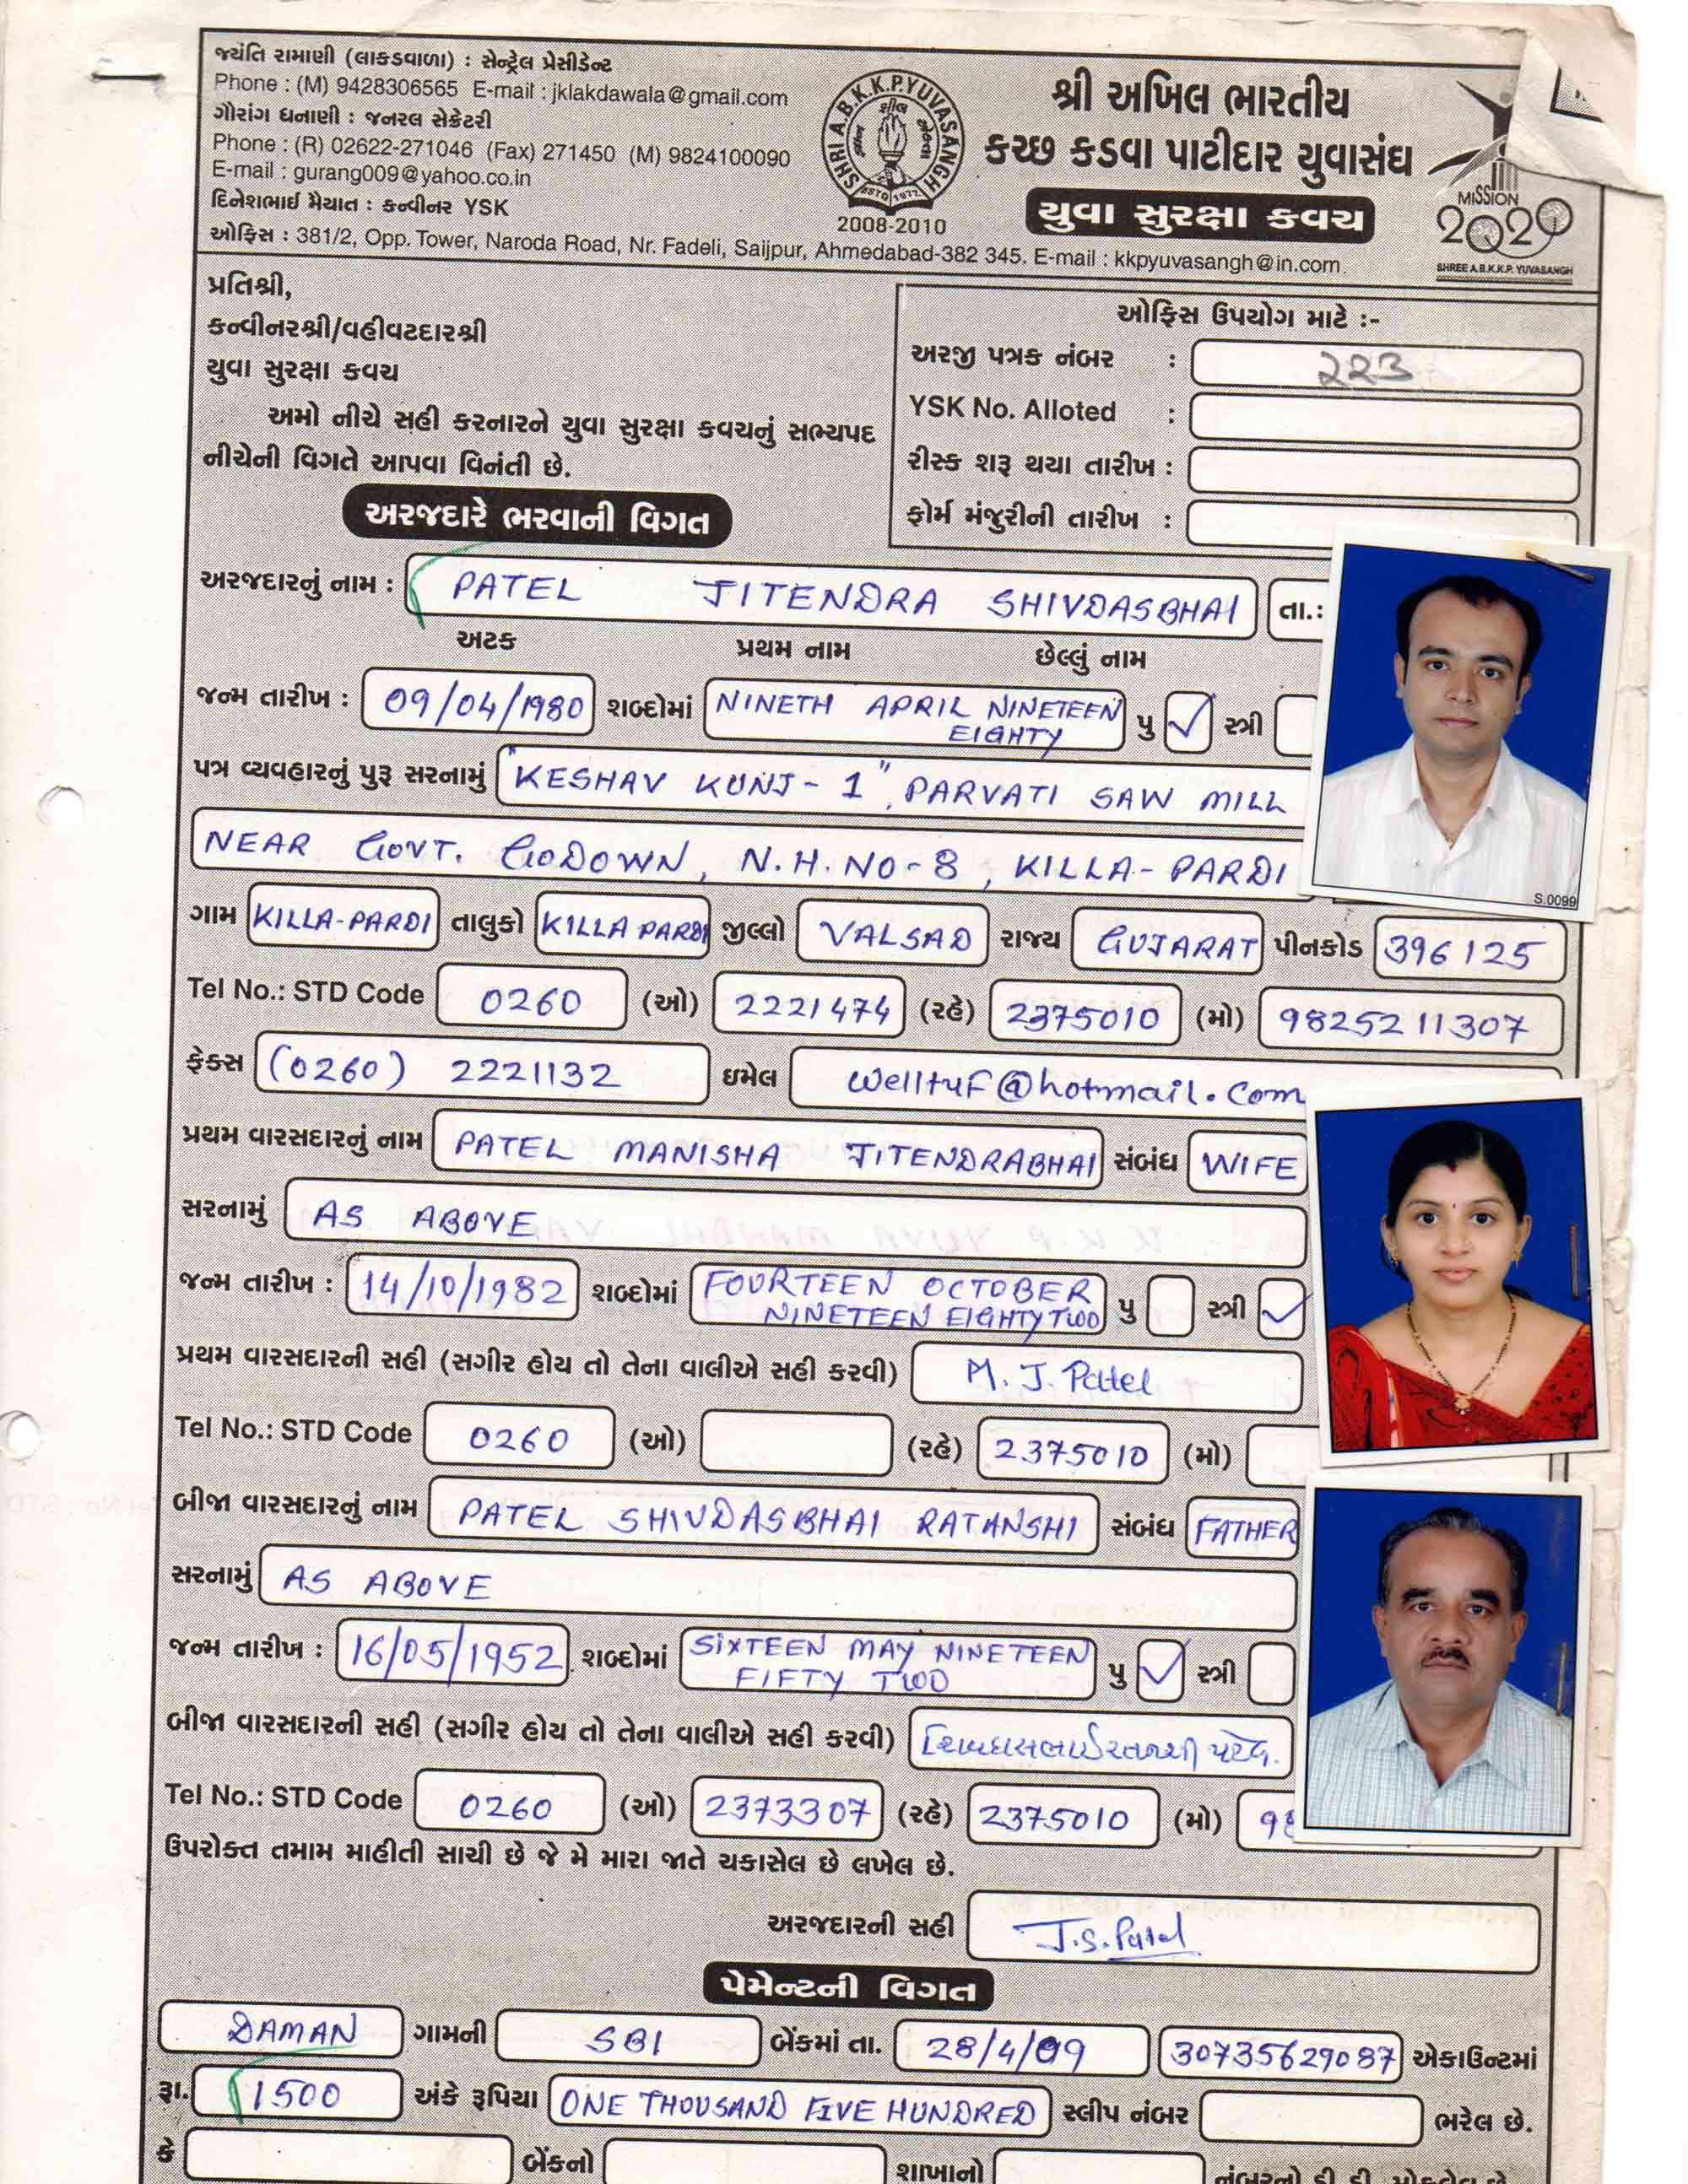 જયંતિ રામાણી (લાકડવાળા) : સેન્ટ્રેલ પ્રેસીડેન્ટ
Phone : (M) 9428306565 E-mail : jklakdawala@gmail.com
ગૌરાંગ ધનાણી : જનરલ સેક્રેટરી
Phone : (R) 02622-271046 (Fax) 271450 (M) 9824100090
E-mail : gurang009@yahoo.co.in
દિનેશભાઈ મૈયાત : કન્વીનર YSK
ઓફિસ : 381/2, Opp. Tower, Naroda Road, Nr. Fadeli, Saijpur, Ahmedabad-382 345. E-mail : kkpyuvasangh@in.com.
SHRI A.B.K.K.P. YUVASANGH
ESTD 1977
2008-2010
શ્રી અખિલ ભારતીય
કચ્છ કડવા પાટીદાર યુવાસંઘ
યુવા સુરક્ષા કવચ
MISSION
2020
SHREE A.B.K.K.P. YUVASANGH
પ્રતિશ્રી,
કન્વીનરશ્રી/વહીવટદારશ્રી
યુવા સુરક્ષા કવચ
અમો નીચે સહી કરનારને યુવા સુરક્ષા કવચનું સભ્યપદ
નીચેની વિગતે આપવા વિનંતી છે.
ઓફિસ ઉપયોગ માટે :-
અરજી પત્રક નંબર : 223
YSK No. Alloted :
રીસ્ક શરૂ થયા તારીખ :
ફોર્મ મંજુરીની તારીખ :
અરજદારે ભરવાની વિગત
અરજદારનું નામ : PATEL JITENDRA SHIVDASBHAI તા.:
અટક પ્રથમ નામ છેલ્લું નામ
જન્મ તારીખ : 09/04/1980 શબ્દોમાં NINETH APRIL NINETEEN EIGHTY પુ ✓ સ્ત્રી
પત્ર વ્યવહારનું પુરૂ સરનામું "KESHAV KUNJ - 1", PARVATI SAW MILL
NEAR GOVT. GODOWN, N.H. NO-8, KILLA-PARDI
S.0099
ગામ KILLA-PARDI તાલુકો KILLA PARDI જીલ્લો VALSAD રાજ્ય GUJARAT પીનકોડ 396125
Tel No.: STD Code 0260 (ઓ) 2221474 (રહે) 2375010 (મો) 9825211307
ફેક્સ (0260) 2221132 ઇમેલ welltuf@hotmail.com
પ્રથમ વારસદારનું નામ PATEL MANISHA JITENDRABHAI સંબંધ WIFE
સરનામું AS ABOVE
જન્મ તારીખ : 14/10/1982 શબ્દોમાં FOURTEEN OCTOBER NINETEEN EIGHTY TWO પુ સ્ત્રી ✓
પ્રથમ વારસદારની સહી (સગીર હોય તો તેના વાલીએ સહી કરવી) M. J. Patel
Tel No.: STD Code 0260 (ઓ) (રહે) 2375010 (મો)
બીજા વારસદારનું નામ PATEL SHIVDASBHAI RATANSHI સંબંધ FATHER
સરનામું AS ABOVE
જન્મ તારીખ : 16/05/1952 શબ્દોમાં SIXTEEN MAY NINETEEN FIFTY TWO પુ ✓ સ્ત્રી
બીજા વારસદારની સહી (સગીર હોય તો તેના વાલીએ સહી કરવી) શિવદાસભાઈ રતનશી પટેલ.
Tel No.: STD Code 0260 (ઓ) 2373307 (રહે) 2375010 (મો) 98
ઉપરોક્ત તમામ માહીતી સાચી છે જે મે મારા જાતે ચકાસેલ છે લખેલ છે.
અરજદારની સહી J.S. Patel
પેમેન્ટની વિગત
DAMAN ગામની SBI બેંકમાં તા. 28/4/09 30735629087 એકાઉન્ટમાં
રૂા. 1500 અંકે રૂપિયા ONE THOUSAND FIVE HUNDRED સ્લીપ નંબર ભરેલ છે.
કે બેંકનો શાખાનો નંબરનો ડી.ડી. મોકલેલ છે